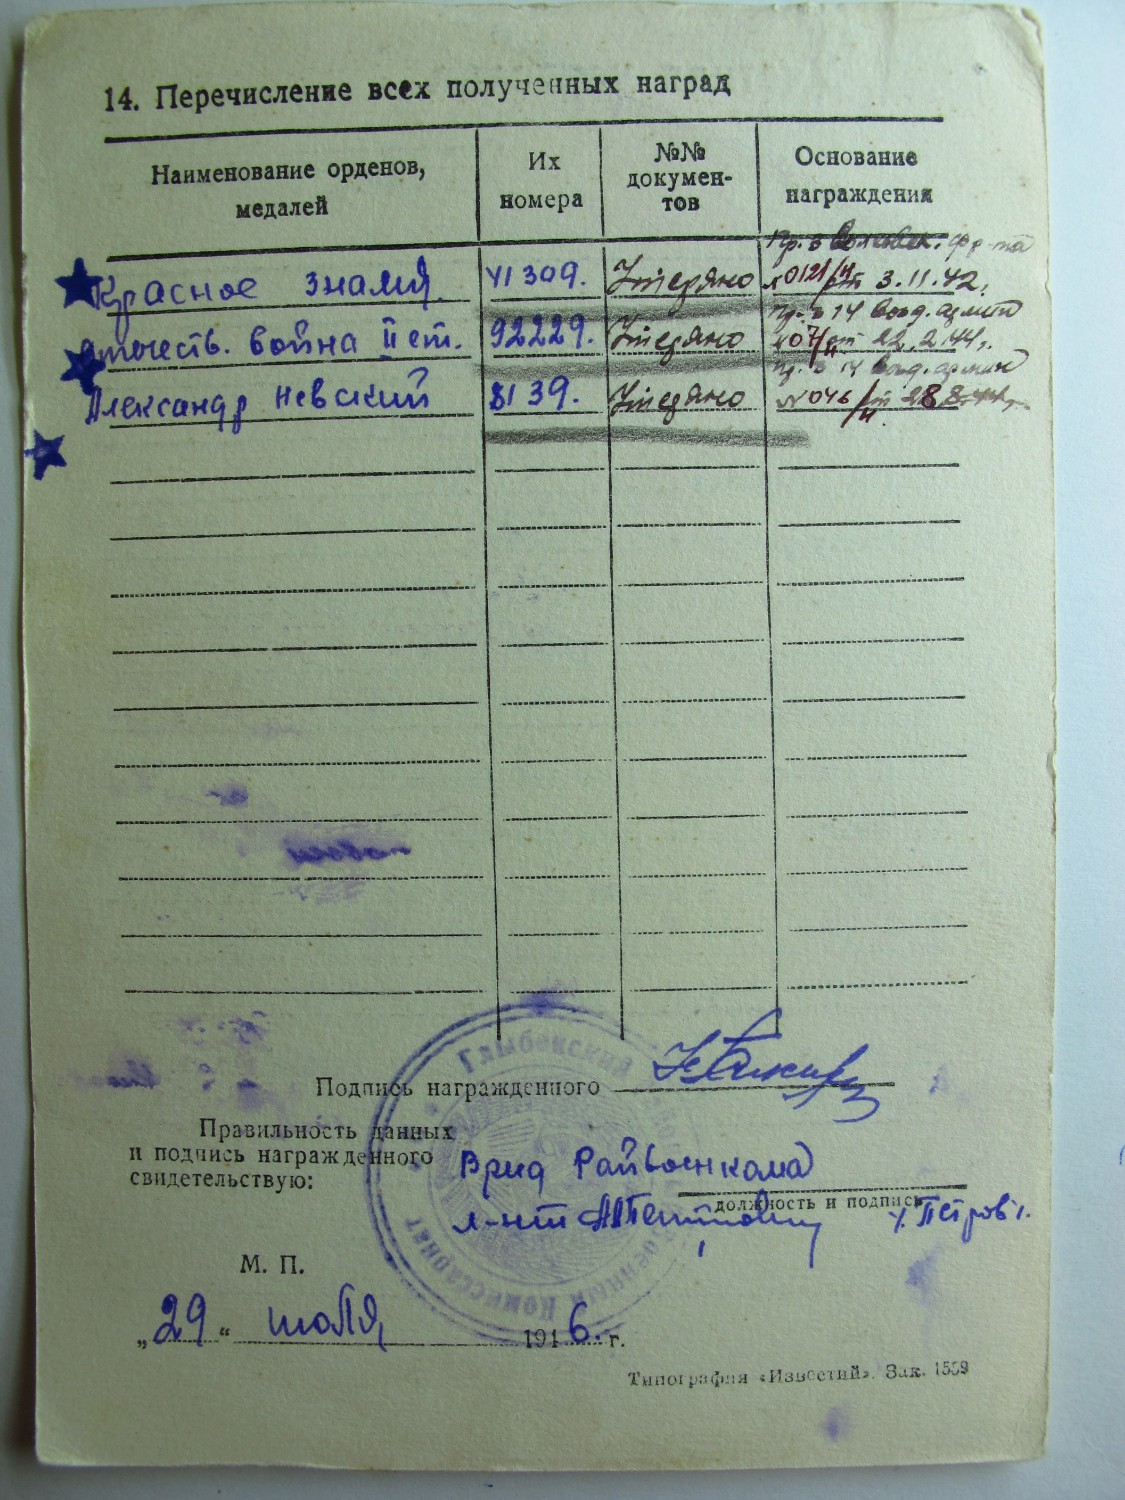 14. Перечисление всех полученных наград
Наименование орденов,
медалей
Их
номера
№№
докумен-
тов
Основание
награждения
Пр. Волховск. фр-та
Красное знамя. 41309. Утеряно №0121/н от 3.11.42.
Пр. 14 возд. армии
Отечеств. война II ст. 92229. Утеряно №07/н от 22.2.44.
Пр. 14 возд. армии
Александр Невский 8139. Утеряно №046/н от
Подпись награжденного
Правильность данных
и подпись награжденного
свидетельствую:
Врид Райвоенкома
должность и подпись
л-нт /Петров/.
М. П.
„29“ июля 1946. г.
Типография «Известий». Зак. 1559
Глыбокский
Военный Комиссариат